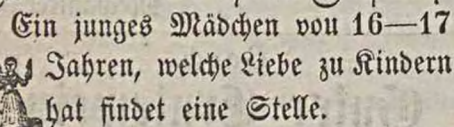 Ein junges Mädchen vou 16—17
Jahren, welche Liebe zu Kindern
hat findet eine Stelle.